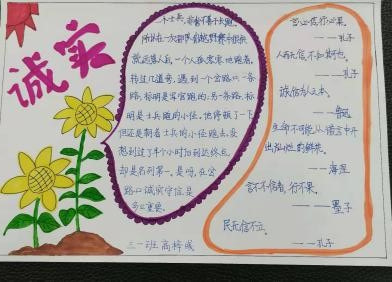 诚实
一个士兵，非常不得于长跑，
所以在一次部队的越野赛中很快
就远落人后，一个人孤零零地跑着。
转过几道弯，遇到一个岔路口，一条
路，标明是军官跑的；另一条路，标
明是士兵跑的小径。他停顿了一下
但还是朝着士兵的小径跑去，没
想到过了半个小时后到达终点，
却是名列第一。是呀，在岔
路口诚实守信是
多么重要。
三一班高梓
言必信，行必果。
——孔子
人而无信，不知其可也。
——孔子
诚信为人之本。
——鲁迅
生命不可能从谎言中开
出灿烂的鲜花。
——海涅
言不信者，行不果。
——墨子
民无信不立。
——孔子